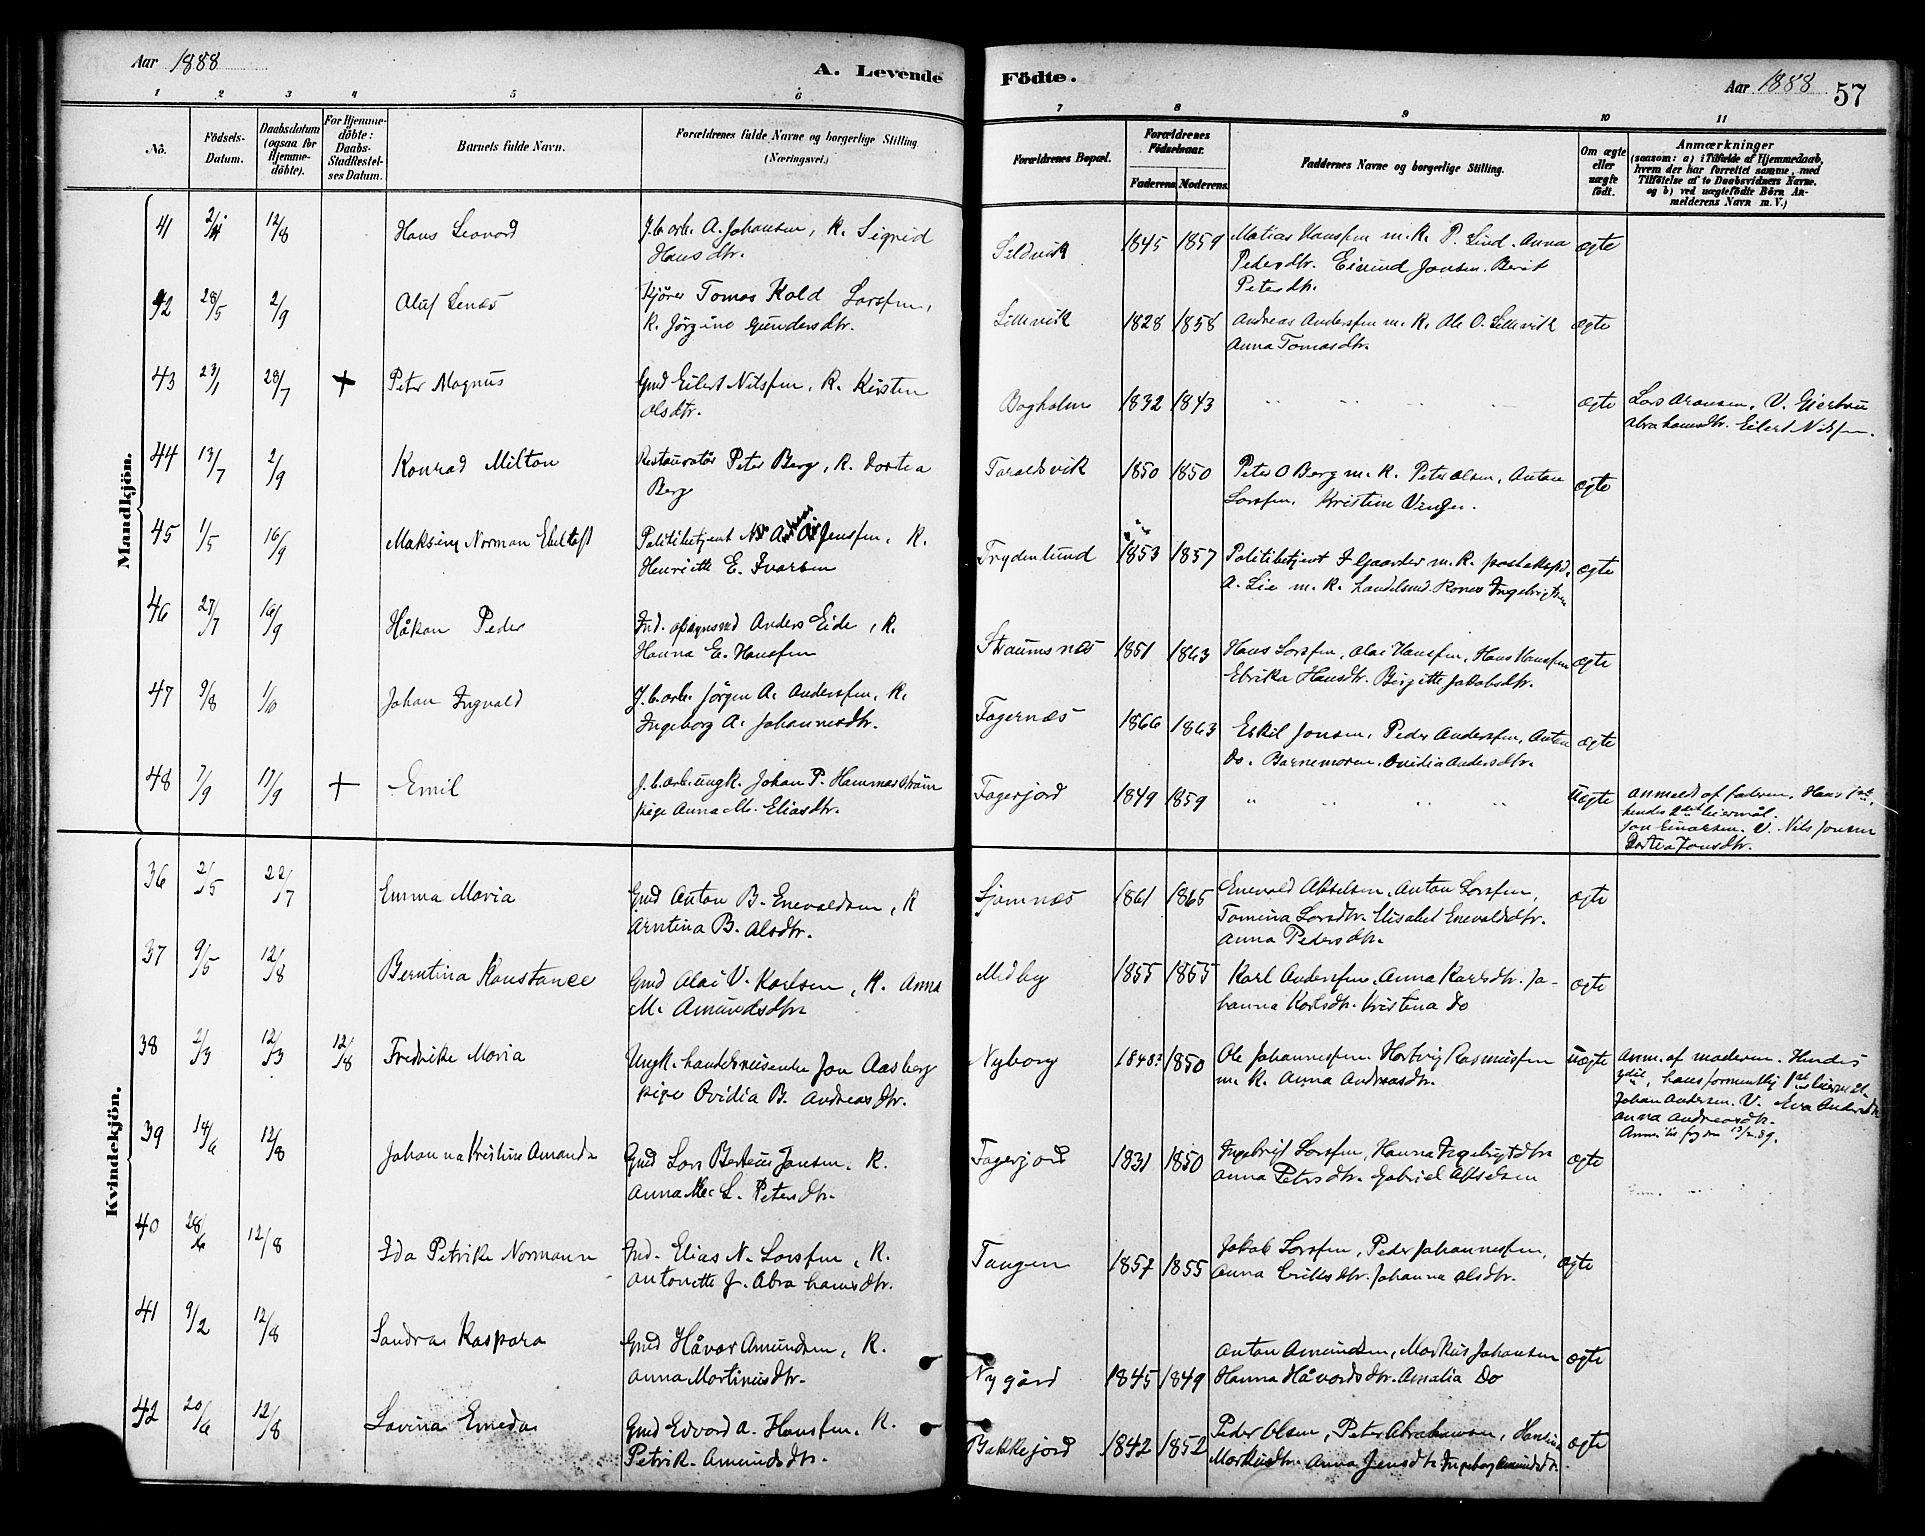 Aar 1888
A. Levende
Födte.
Aar 1888
57
1 2 3 4 5 6 7 8 9 10 11
No.
Födsels-
Datum.
Daabsdatum
(ogsaa for
Hjemme-
döbte).
For Hjemme-
döbte:
Daabs-
Stadfæstel-
ses Datum.
Barnets fulde Navn.
Forældrenes fulde Navne og borgerlige Stilling
(Næringsvei.)
Forældrenes Bopæl.
Forældrenes
Födselsaar.
Faderens. Moderens.
Faddernes Navne og borgerlige Stilling.
Om ægte
eller
uægte
födt.
Anmærkninger
(saasom: a) i Tilfælde af Hjemmedaab,
hvem der har forrettet samme, med
Tilföielse af to Daabsvidners Navne,
og b) ved uægtefödte Börn An-
melderens Navn m. V.)
Mandkjön.
41 12/8 Hans Leavord J.b.arb. A. Johansen, K. Sigrid
Hansdtr.
Sildvik 1845 1859 Matias Hanssen m. K. P. Lind. Anna
Pedersdtr. Eivind Jonsen. Berit
Petersdtr.
ægte
42 28/5 2/9 Oluf Lenæs Kjörer Tomas Kold Larssen,
K. Jörgine Gundersdtr.
Lillevik 1828 1858 Andreas Anderssen m. K. Ole O. Lillevik
Anna Tomasdtr.
ægte
43 23/1 28/7 + Peter Magnus Gmd Eilert Nilssen, K. Kirsten
Olsdtr.
Bogholm 1832 1843 " " " ægte Lars Aronsen. V. Gjertru
Abrahamsdtr. Eilert Nilssen.
44 13/7 2/9 Konrad Milton Restauratör Peter Berg, K. Dortea
Berg
Taraldsvik 1850 1850 Peter O Berg m. K. Peter Olsen, Anton
Larssen, Kristine Vinger.
ægte
45 1/5 16/9 Maksim Norman Ebeltoft Politibetjent Jenssen, K.
Henriette E. Ivarsen
Frydenlund 1853 1857 Politibetjent I Gaarder m. K. posteksped.
A. Lie m. K. handelsmd Kones Ingebrigtsen
ægte
46 27/7 16/9 Håkon Peder Ind. opsynsmd Anders Eide, K.
Hanna E. Hanssen
Straumsnæs 1851 1863 Hans Larssen, Olai Hanssen, Hans Hanssen
Ebrika Hansdtr. Birgitte Jakobsdtr.
ægte
47 9/8 Johan Ingvald J.b.arb. Jörgen A. Anderssen, K.
Ingeborg A. Johannesdtr.
Fagernæs 1866 1863 Eskil Jonsen, Peder Anderssen, Anton
Do. Barnemoren. Ovidia Andersdtr.
ægte
48 7/9 17/9 + Emil J.b.arb. ungk. Johan P. Hammerström
pige Anna M. Eliasdtr.
Fagerjord 1849 1859 " " " " Uægte Anmeldt af fadren. Hans 1ste,
hendes 2det leiermål.
Jon Einarsen. V. Nils Jonsen
Dortea Jonsdtr.
Kvindekjön.
36 2/5 22/7 Emma Maria Gmd Anton B. Enevoldsen, K
Arntina B. Olsdtr.
Sjomnæs 1861 1865 Enevald Akselsen, Anton Larssen,
Tomina Larsdtr. Elisabet Enevaldsdtr.
Anna Pedersdtr.
ægte
37 9/5 12/8 Berntina Konstance Gmd Olai V. Karlsen, K. Anna
M. Amundsdtr
Medby 1855 1855 Karl Anderssen, Anna Karlsdtr. Jo-
hanna Karlsdtr. Kristina Do
ægte
38 2/3 12/3 12/8 Fredrike Maria Ungk. handelsreisende Jon Aasberg
pige Ovidia B. Andreasdtr.
Nyborg 1848? 1850 Ole Johannessen. Hartvig Rasmussen
m. K. Anna Andreasdtr.
uægte Anm. af moderen. Hendes
hans formentlig 1ste leiermål.
Johan Andersen. V. Eva Andersdtr
Anna Andreasdtr.
39 14/6 12/8 Johanna Kristine Amanda Gmd Lars Berteus Jansen. K.
Anna L. Petersdtr.
Fagerjord 1831 1850 Ingebrigt Larssen, Hanna Ingebrigtdtr
Anna Petersdtr. Gabriel Akselsen
ægte
40 28/6 12/8 Ida Petrike Normann Ind. Elias N. Larssen, K.
Antonette J. Abrahamsdtr.
Tangen 1857 1855 Jakob Larssen, Peder Johannessen,
Anna Eriksdtr. Johanna Olsdtr.
ægte
41 9/2 12/8 Sandra Kaspara Gmd Håvar Amundsen, K.
Anna Martinusdtr.
Nygård 1845 1849 Anton Amundsen, Markus Johansen
Hanna Håvardsdtr. Amalia Do
ægte
42 20/6 12/8 Lavina Emeda Gmd Edvard A. Hanssen, K.
Petrik. Amundsdtr.
Bakkejord 1842 1852 Peder Olsen, Peter Abrahamsen, Hansina
Markusdtr. Anna Jensdtr Ingeborg Amundsdtr.
ægte